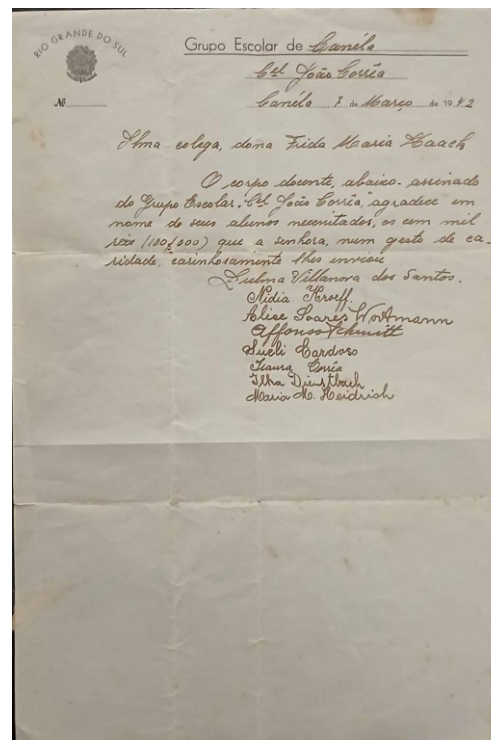 RIO GRANDE DO SUL
Grupo Escolar de Canéla
Cel João Corrêa
Nº
Canéla 7 de Março de 1942
Ilma colega, dona Frida Maria Haach
O corpo docente, abaixo-assinado
do Grupo Escolar "Cel João Corrêa, agradece em
nome de seus alunos necessitados, os cem mil
reis (100$000) que a senhora, num gesto de ca-
ridade, carinhosamente lhes enviou
Villanova dos Santos.
Nidia Kroeff.
Alice Soares Wortmann
Affonso Schmitt
Sueli Cardoso
Isaura Corrêa
Ilka Dienstbach
Maria M. Heidrich